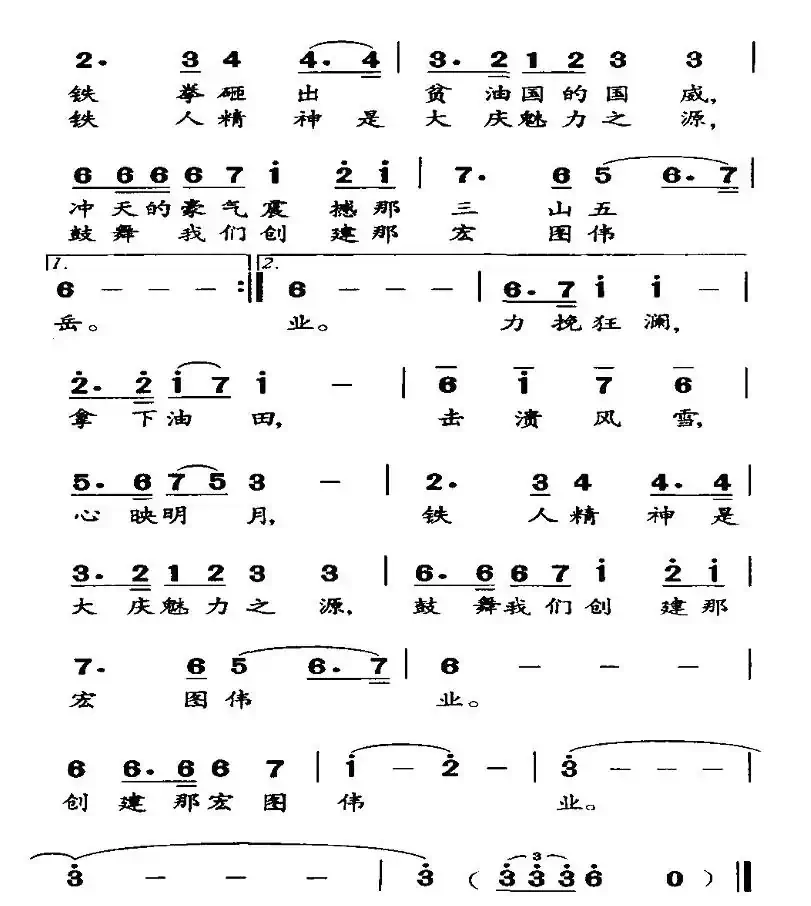 2. 3 4 4. 4 | 3. 2 1 2 3 3 |
铁 拳 砸 出 贫 油 国 的 国 威,
铁 人 精 神 是 大 庆 魅 力 之 源,
6 6 6 6 7 i 2 i | 7. 6 5 6. 7 |
冲 天 的 豪 气 震 撼 那 三 山 五
鼓 舞 我 们 创 建 那 宏 图 伟
1. 2.
6 — — — :‖ 6 — — — | 6. 7 i i — |
岳。 业。 力 挽 狂 澜,
2. 2 i 7 i — | 6 i 7 6 |
拿 下 油 田, 击 溃 风 雪,
5. 6 7 5 3 — | 2. 3 4 4. 4 |
心 映 明 月, 铁 人 精 神 是
3. 2 1 2 3 3 | 6. 6 6 7 i 2 i |
大 庆 魅 力 之 源, 鼓 舞 我 们 创 建 那
7. 6 5 6. 7 | 6 — — — |
宏 图 伟 业。
6 6. 6 6 7 | i — 2 — | 3 — — — |
创 建 那 宏 图 伟 业。
3 — — — | 3 ( 3 3 3 6 0 ) ‖
3